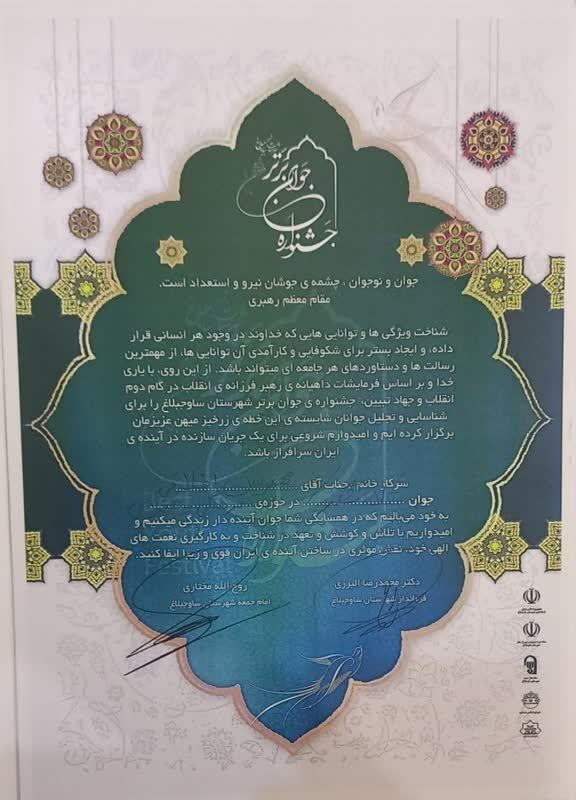 جشنواره جوان برتر
جوان و نوجوان ، چشمه ی جوشان نیرو و استعداد است.
مقام معظم رهبری
شناخت ویژگی ها و توانایی هایی که خداوند در وجود هر انسانی قرار
داده، و ایجاد بستر برای شکوفایی و کارآمدی آن توانایی ها، از مهمترین
رسالت ها و دستاوردهای هر جامعه ای میتواند باشد. از این روی، با یاری
خدا و بر اساس فرمایشات داهیانه ی رهبر فرزانه ی انقلاب در گام دوم
انقلاب و جهاد تبیین، جشنواره ی جوان برتر شهرستان ساوجبلاغ را برای
شناسایی و تجلیل جوانان شایسته ی این خطه ی زرخیز میهن عزیزمان
برگزار کرده ایم و امیدوارم شروعی برای یک جریان سازنده در آینده ی
ایران سرافراز باشد.
سرکار خانم /جناب آقای
جوان .................... در حوزه‌ی ....................
به خود می‌بالیم که در همسایگی شما جوان آینده دار زندگی میکنیم و
امیدواریم با تلاش و کوشش و تعهد در شناخت و به کارگیری نعمت های
الهی خود، نقش موثری در ساختن آینده ی ایران قوی و زیبا ایفا کنید.
Festival
دکتر محمدرضا البرزی
فرماندار شهرستان ساوجبلاغ
روح الله مختاری
امام جمعه شهرستان ساوجبلاغ